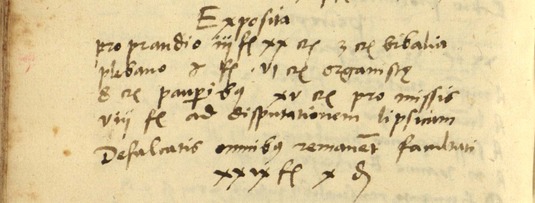 Exposita
pro prandio iiij fl xx cr 3 cr bibalia
plebano 1 fl vi cr organistę
8 cr pauperibus xv cr pro missis
viij fl ad disputationem lipsicam
Defalcatis omnibus remanent facultati
xxix fl x d